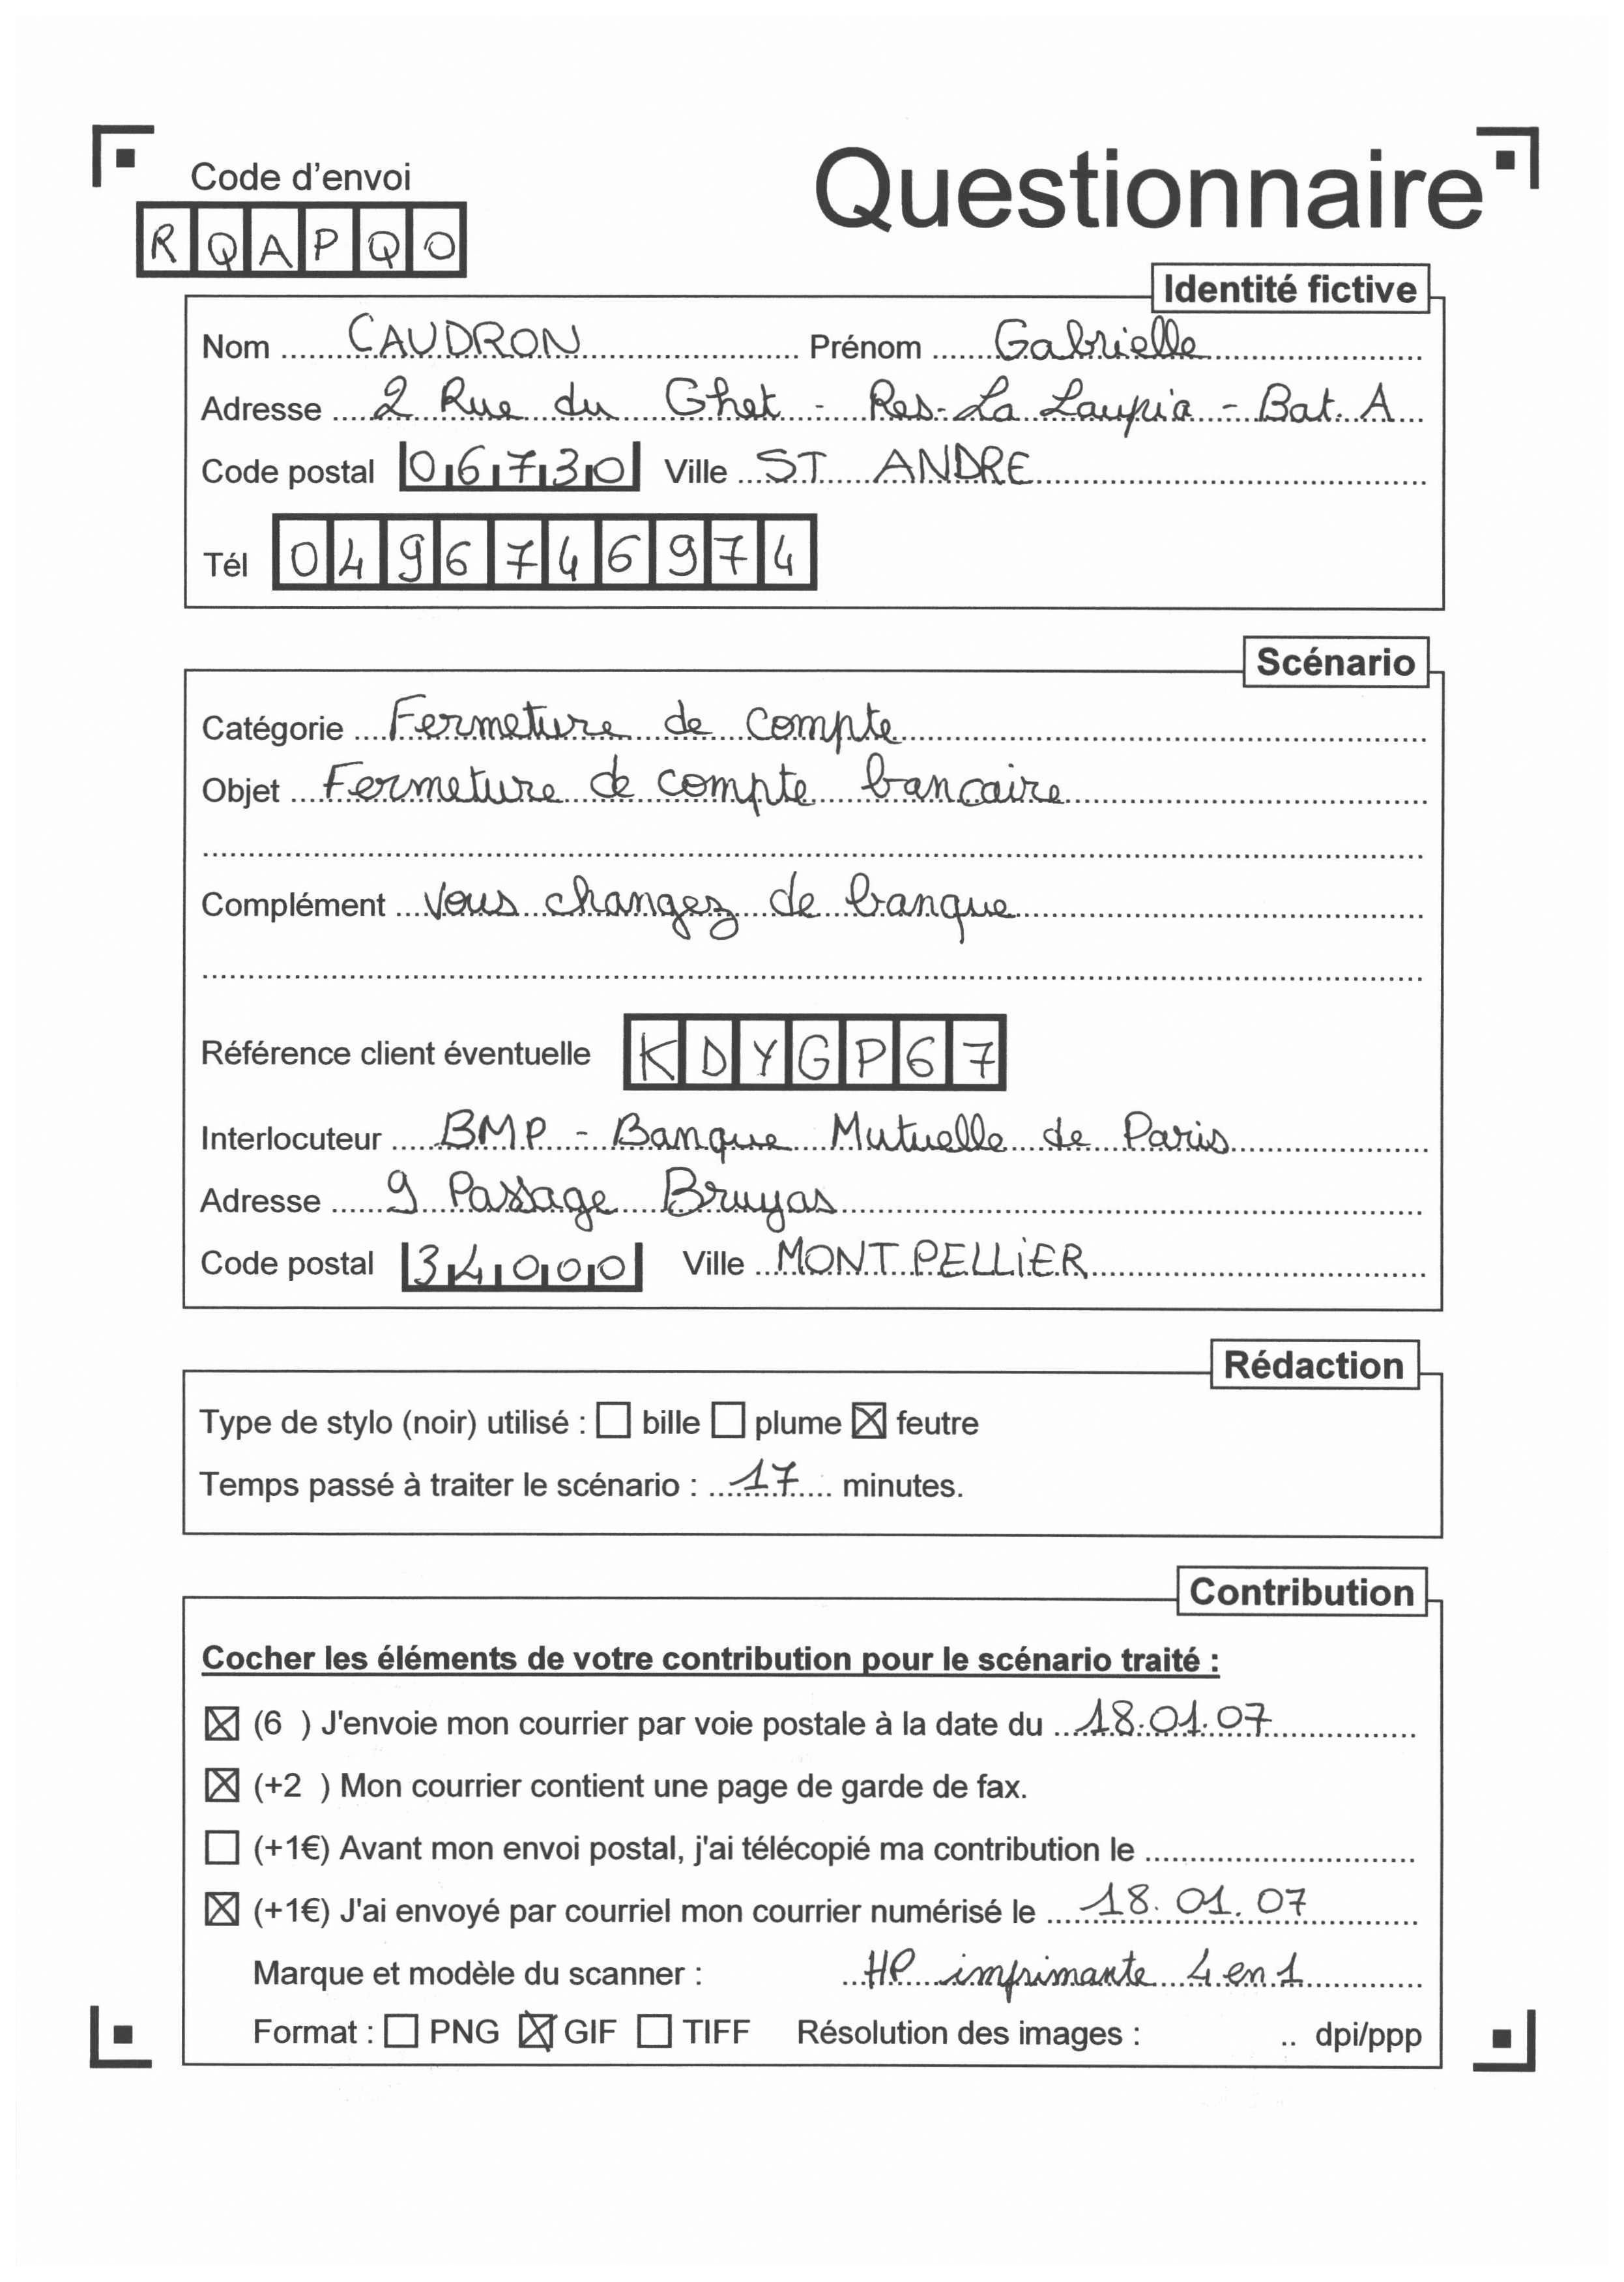 Code d'envoi
Questionnaire
RQAPQO
Identité fictive
Nom CAUDRON Prénom Gabrielle
Adresse 2 Rue du Ghet - Res. La Laupia - Bat. A
Code postal 06730 Ville ST ANDRE
Tél 0496746974
Scénario
Catégorie Fermeture de compte
Objet Fermeture de compte bancaire
Complément Vous changez de banque
Référence client éventuelle KDYGP67
Interlocuteur BMP - Banque Mutuelle de Paris
Adresse 9 Passage Bruyas
Code postal 34000 Ville MONTPELLIER
Rédaction
Type de stylo (noir) utilisé : ☐ bille ☐ plume ☒ feutre
Temps passé à traiter le scénario : 17 minutes.
Contribution
Cocher les éléments de votre contribution pour le scénario traité :
☒ (6 ) J'envoie mon courrier par voie postale à la date du 18.01.07
☒ (+2 ) Mon courrier contient une page de garde de fax.
☐ (+1€) Avant mon envoi postal, j'ai télécopié ma contribution le
☒ (+1€) J'ai envoyé par courriel mon courrier numérisé le 18.01.07
Marque et modèle du scanner : HP imprimante 4 en 1
Format : ☐ PNG ☒ GIF ☐ TIFF Résolution des images : .. dpi/ppp